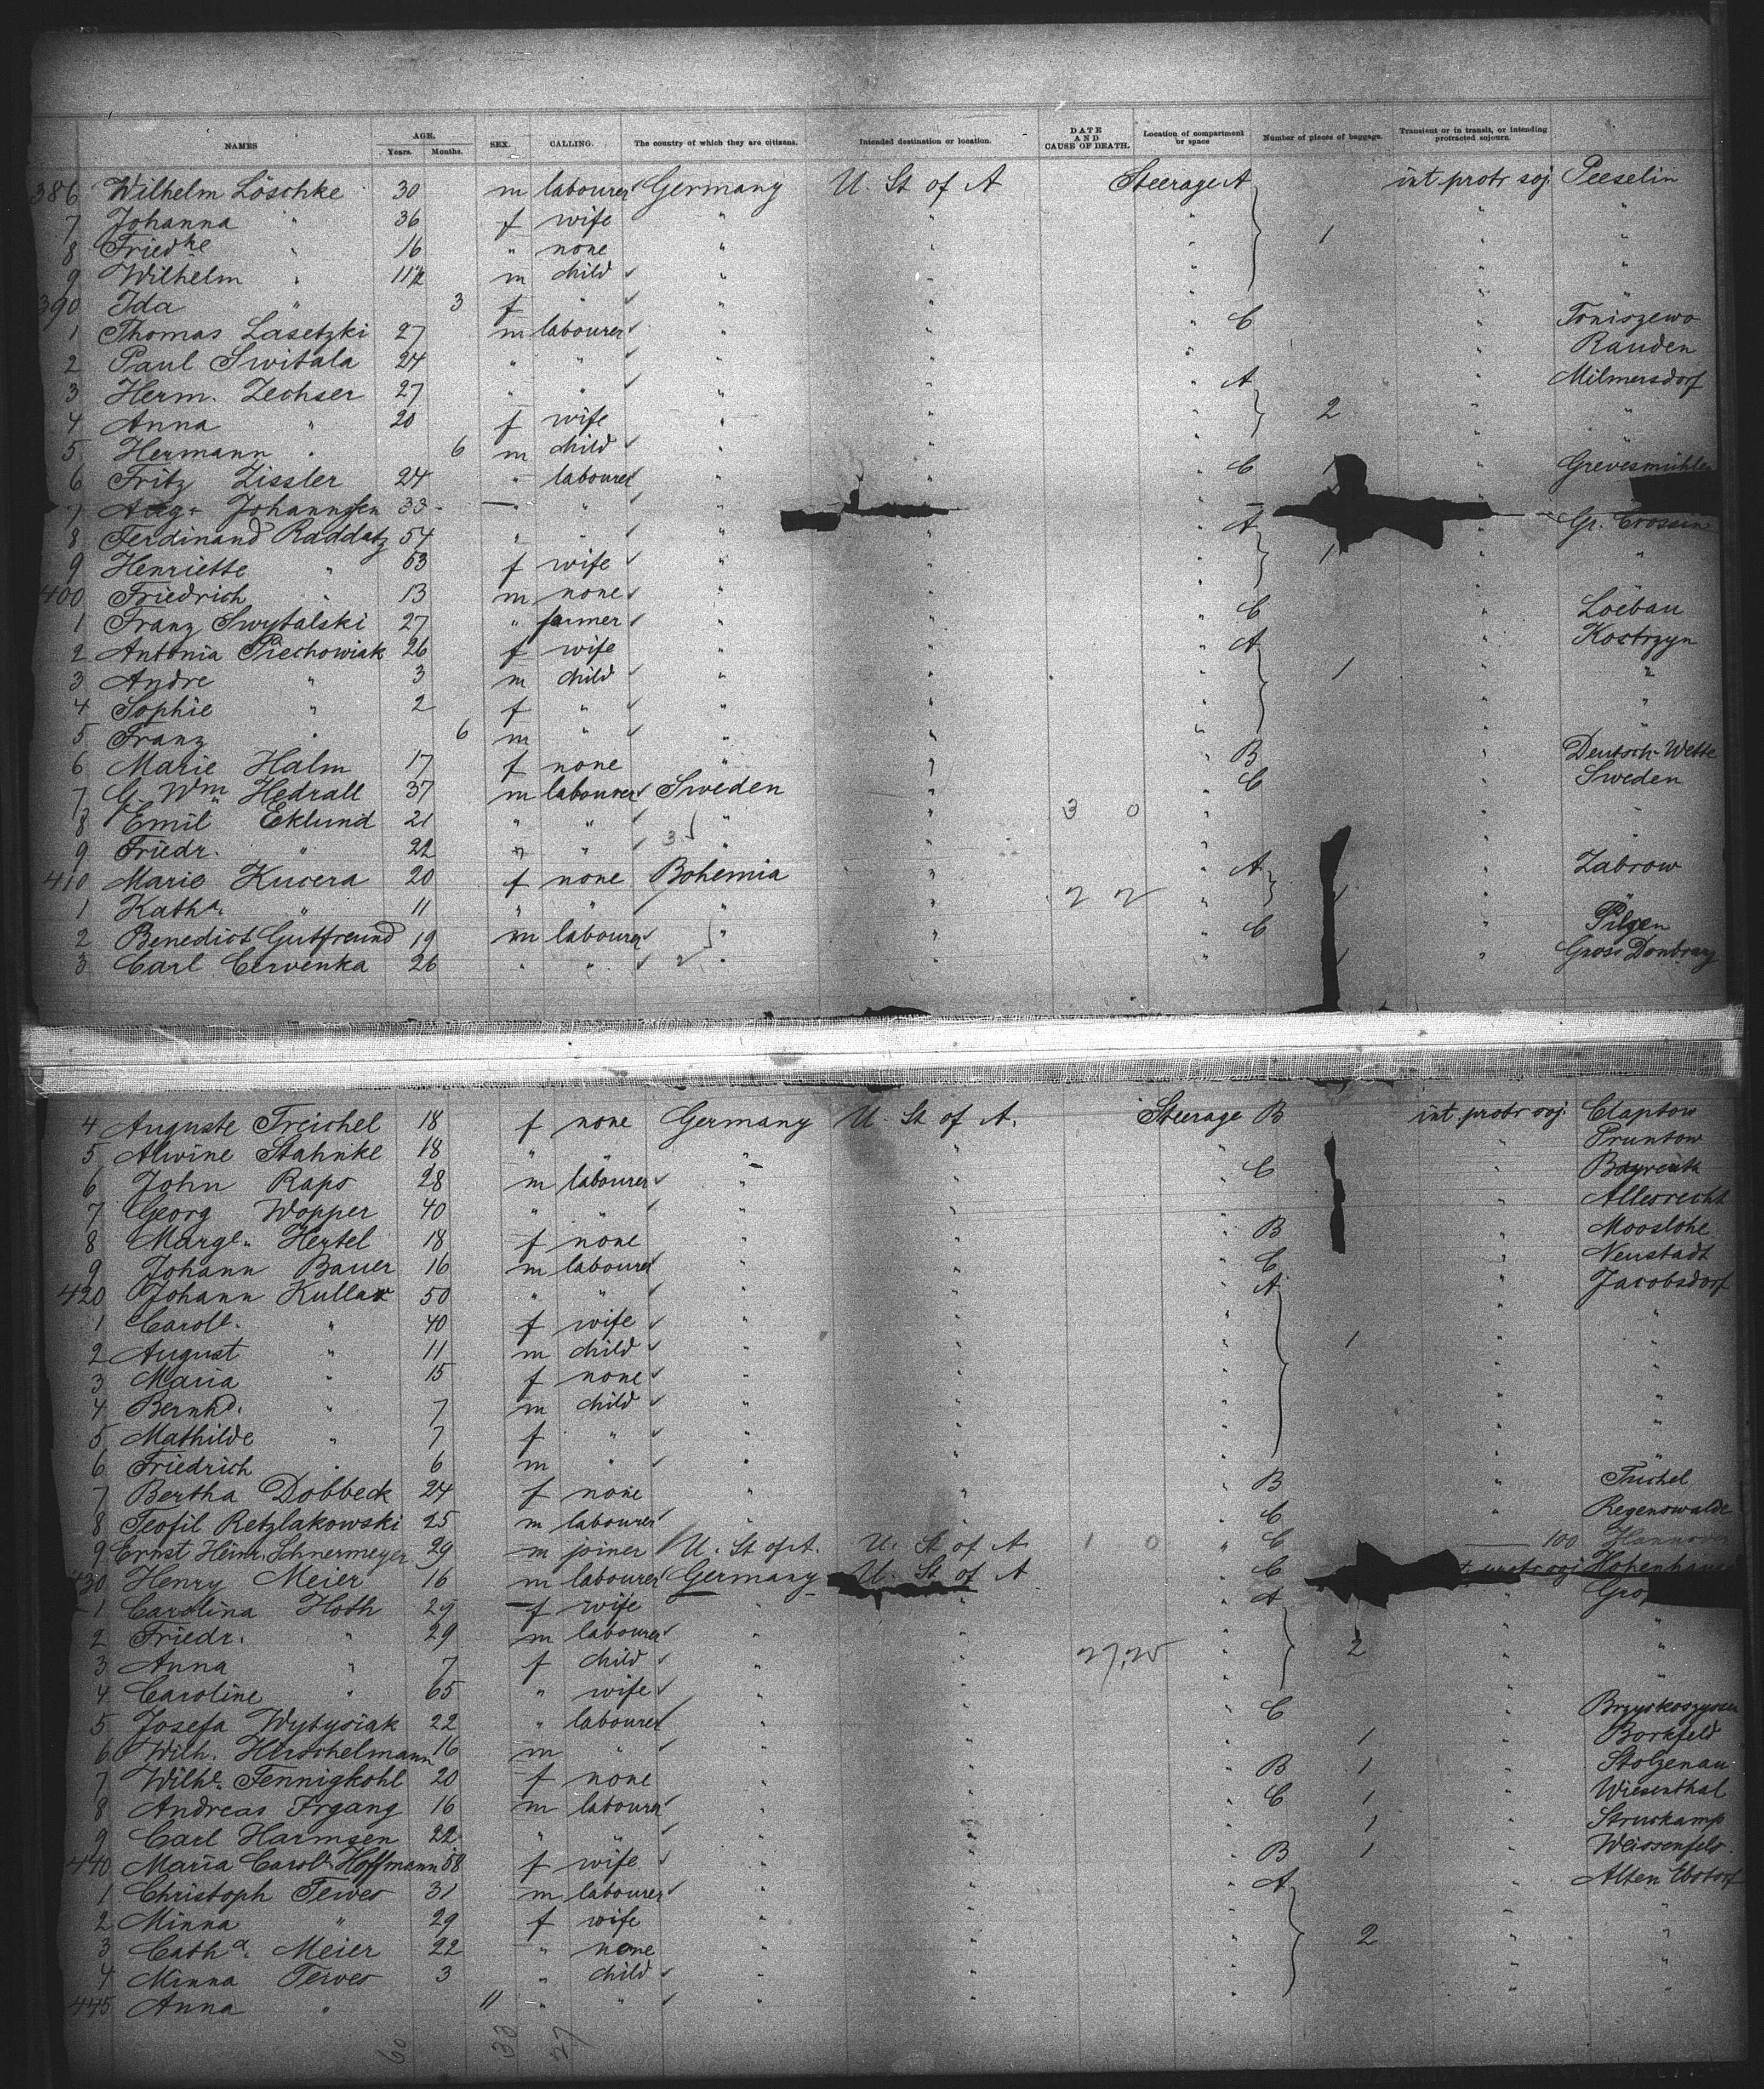 NAMES AGE. Years. Months. SEX. CALLING. The country of which they are citizens. Intended destination or location. DATE AND CAUSE OF DEATH. Location of compartment or space Number of pieces of baggage. Transient or in transit, or intending protracted sojourn.
386 Wilhelm Löschke 30 m labourer Germany U. St of A Steerage A int protr soj. Peeselin
7 Johanna " 36 f wife " " " 1 " "
8 Friedke " 16 " none " " " " "
9 Wilhelm " 11½ m child " " " " "
390 Ida " 3 f " " " " " "
1 Thomas Lasetzki 27 m labourer " " " C " Toniszewo
2 Paul Switala 24 " " " " " " Rauden
3 Herm. Zechser 27 " " " " " A " Milmersdorf
4 Anna " 20 f wife " " " 2 " "
5 Hermann " 6 m child " " " " "
6 Fritz Zissler 24 " labourer " " " C 1 " Grevesmühlen
7 Aug. Johannsen 33 " " " "
8 Ferdinand Raddatz 54 " " " " " A " Gr. Crossin
9 Henriette " 63 f wife " " " 1 " "
400 Friedrich " 13 m none " " " "
1 Franz Swytalski 27 " farmer " " " C " Loebau
2 Antonia Piechowiak 26 f wife " " " A " Kostrzyn
3 Andre " 3 m child " " " 1 " "
4 Sophie " 2 f " " " " " "
5 Franz " 6 m " " " " " "
6 Marie Halm 17 f none " " " B " Deutsch-Wette
7 G. Wm Hedrall 37 m labourer Sweden " " C " Sweden
8 Emil Eklund 21 " " " " 3 0 " " "
9 Friedr. " 22 " " 3 " " " "
410 Marie Kucera 20 f none Bohemia " " A " Zabrow
1 Katha. " 11 " " " " 2 2 " 1 " "
2 Benedict Gutfreund 19 m labourer " " " C " Pilsen
3 Carl Cervenka 26 " " 2 " " " 1 " Gross
4 Auguste Treichel 18 f none Germany U. St of A. Steerage B int. protr soj Claptow
5 Alwine Stahnke 18 " " " " " " Pruntow
6 John Raps 28 m labourer " " " C " Bayreuth
7 Georg Wopper 40 " " " " " " Allesrecht
8 Marge. Hertel 18 f none " " " B " Mooslohe
9 Johann Bauer 16 m labourer " " " C " Neustadt
420 Johann Kullar 50 " " " " " A " Jacobsdorf
1 Carole. " 40 f wife " " " " "
2 August " 11 m child " " " 1 " "
3 Maria " 15 f none " " " " "
4 Bernhd. " 7 m child " " " " "
5 Mathilde " 7 f " " " " " "
6 Friedrich " 6 m " " " " " "
7 Bertha Dobbeck 24 f none " " " B " Tuchel
8 Teofil Retzlakowski 25 m labourer " " " C " Regenswalde
9 Ernst Heinr. Schnermeyer 29 m joiner U. St of A. U. St of A 1 0 " C 100 Hannover
430 Henry Meier 16 m labourer Germany U. St of A " C Hohenhausen
1 Carolina Hoth 29 f wife " " " A " Gro
2 Friedr. " 29 m labourer " " " 2 " "
3 Anna " 7 f child " " 27,25 " "
4 Caroline " 65 " wife " " " " "
5 Josefa Wytysiak 22 " labourer " " " C "
6 Wilh. Hirschelmann 16 m " " " " 1 " Borkfeld
7 Wilhe. Fennigkohl 20 f none " " " B 1 " Stolzenau
8 Andreas Irgang 16 m labourer " " " C 1 " Wiesenthal
9 Carl Harmsen 22 " " " " " 1 " Struckamp
440 Maria Carole Hoffmann 58 f wife " " " B 1 " Weissenfels.
1 Christoph Tewes 31 m labourer " " " A " Alten Ebstorf
2 Minna " 29 f wife " " " " "
3 Catha. Meier 22 " none " " " 2 " "
4 Minna Tewes 3 " child " " " " "
445 Anna " 11 " " " " " " "
60 33 27